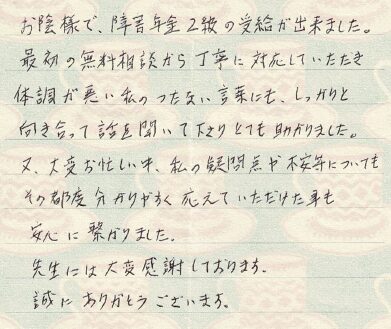 お陰様で、障害年金2級の受給が出来ました。
最初の無料相談から丁寧に対応していただき
体調が悪い私のつたない言葉にも、しっかりと
向き合って話を聞いて下さりとても助かりました。
又、大変お忙しい中、私の疑問点や不安等についても
その都度分かりやすく応えていただけた事も
安心に繋がりました。
先生には大変感謝しております。
誠にありがとうございます。